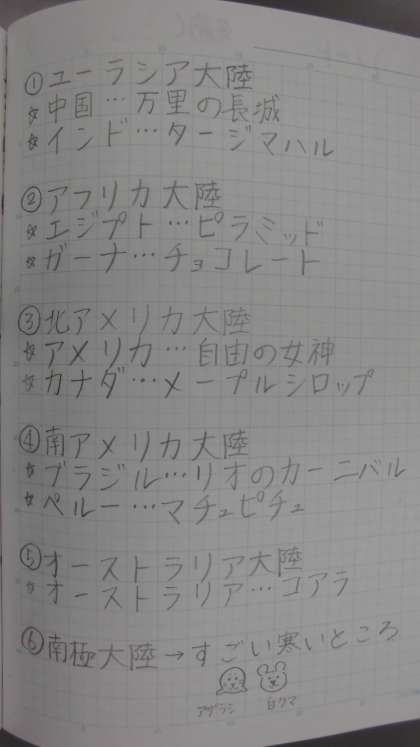 ①ユーラシア大陸
☆中国…万里の長城
☆インド…タージマハル
②アフリカ大陸
☆エジプト…ピラミッド
☆ガーナ…チョコレート
③北アメリカ大陸
☆アメリカ…自由の女神
☆カナダ…メープルシロップ
④南アメリカ大陸
☆ブラジル…リオのカーニバル
☆ペルー…マチュピチュ
⑤オーストラリア大陸
☆オーストラリア…コアラ
⑥南極大陸→すごい寒いところ
アザラシ 白クマ